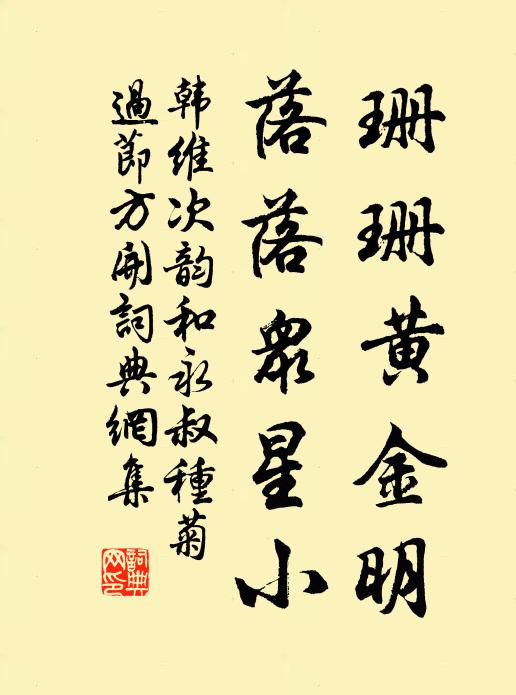 珊珊黄金明
落落衆星小
韩維次韵和永叔種菊
過節方開詞典網集
詞典
网印